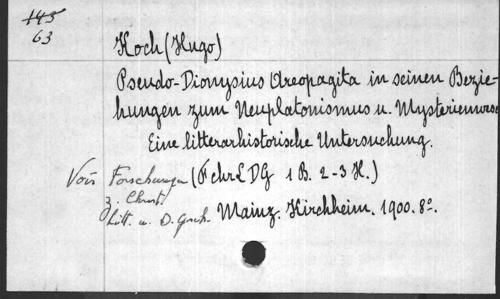 145
63
Koch (Hugo)
Pseudo-Dionysius Areopagita in seinen Bezie-
hungen zum Neuplatonismus u. Mysterienwese
Eine litterarhistorische Untersuchung.
Voir Forschungen (FchrLDG 1 B. 2-3 H.)
z. Christ.
Litt. u. D. Gesch. Mainz. Kirchheim. 1900. 8º.